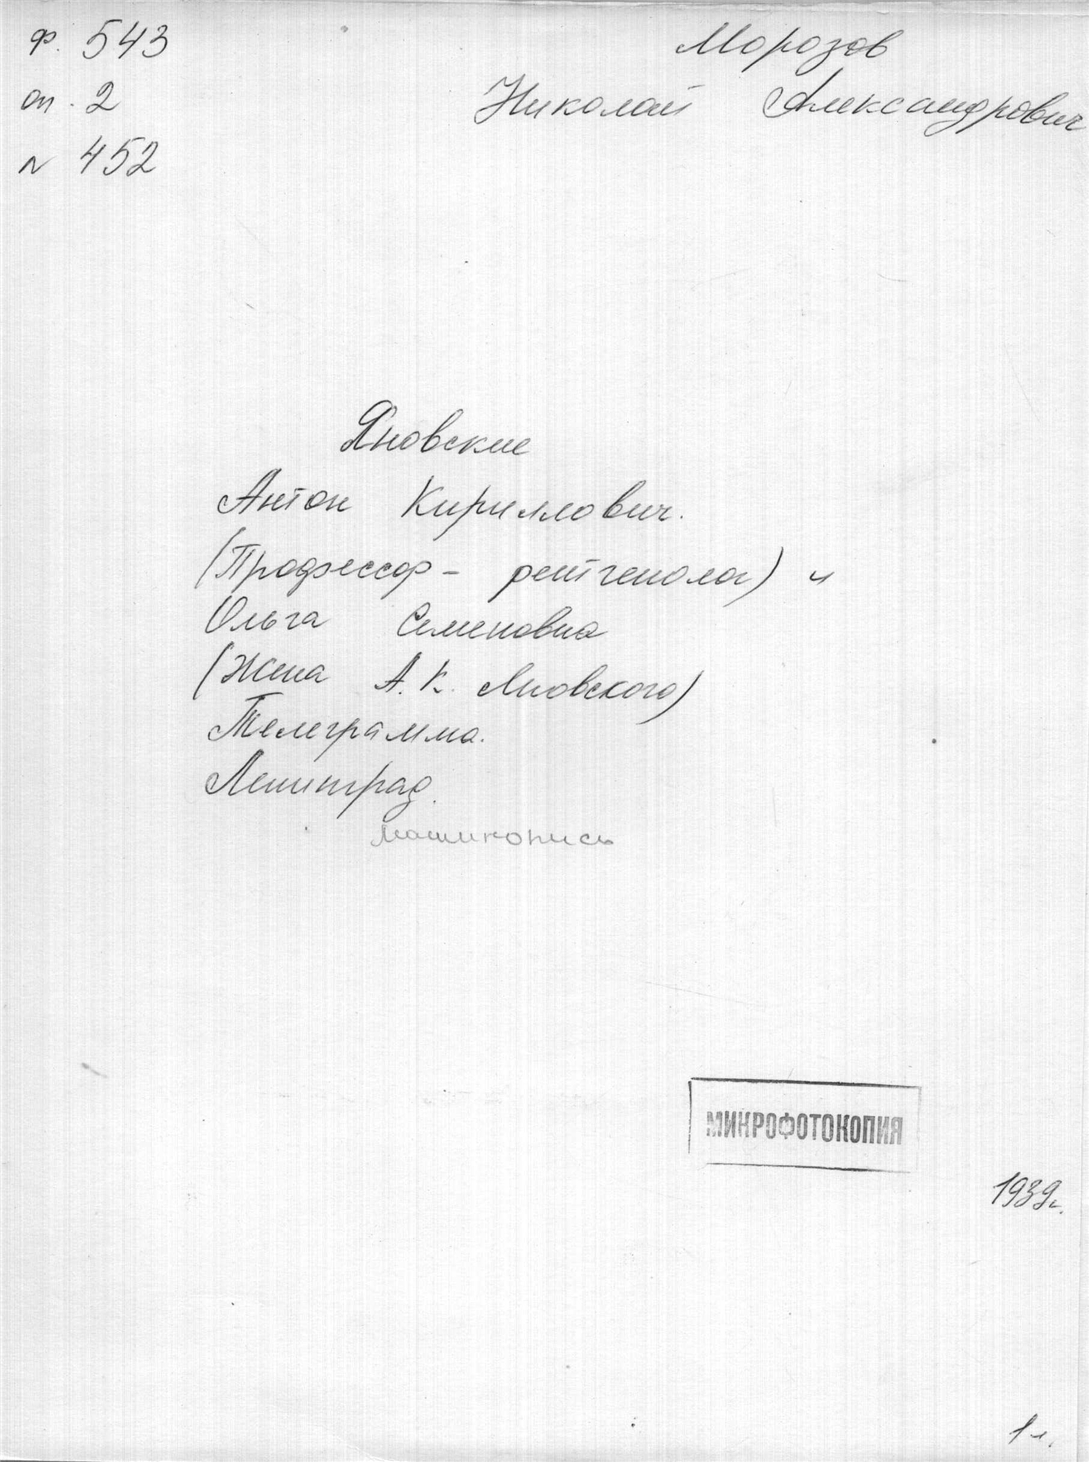 ф. 543
оп. 2
№ 452
Морозов
Николай Александрович
Яновские
Антон Кириллович.
(Профессор - рентгенолог) и
Ольга Семеновна
(Жена А. К. Яновского)
Телеграмма.
Ленинград.
машинопись
МИКРОФОТОКОПИЯ
1939г.
1 л.